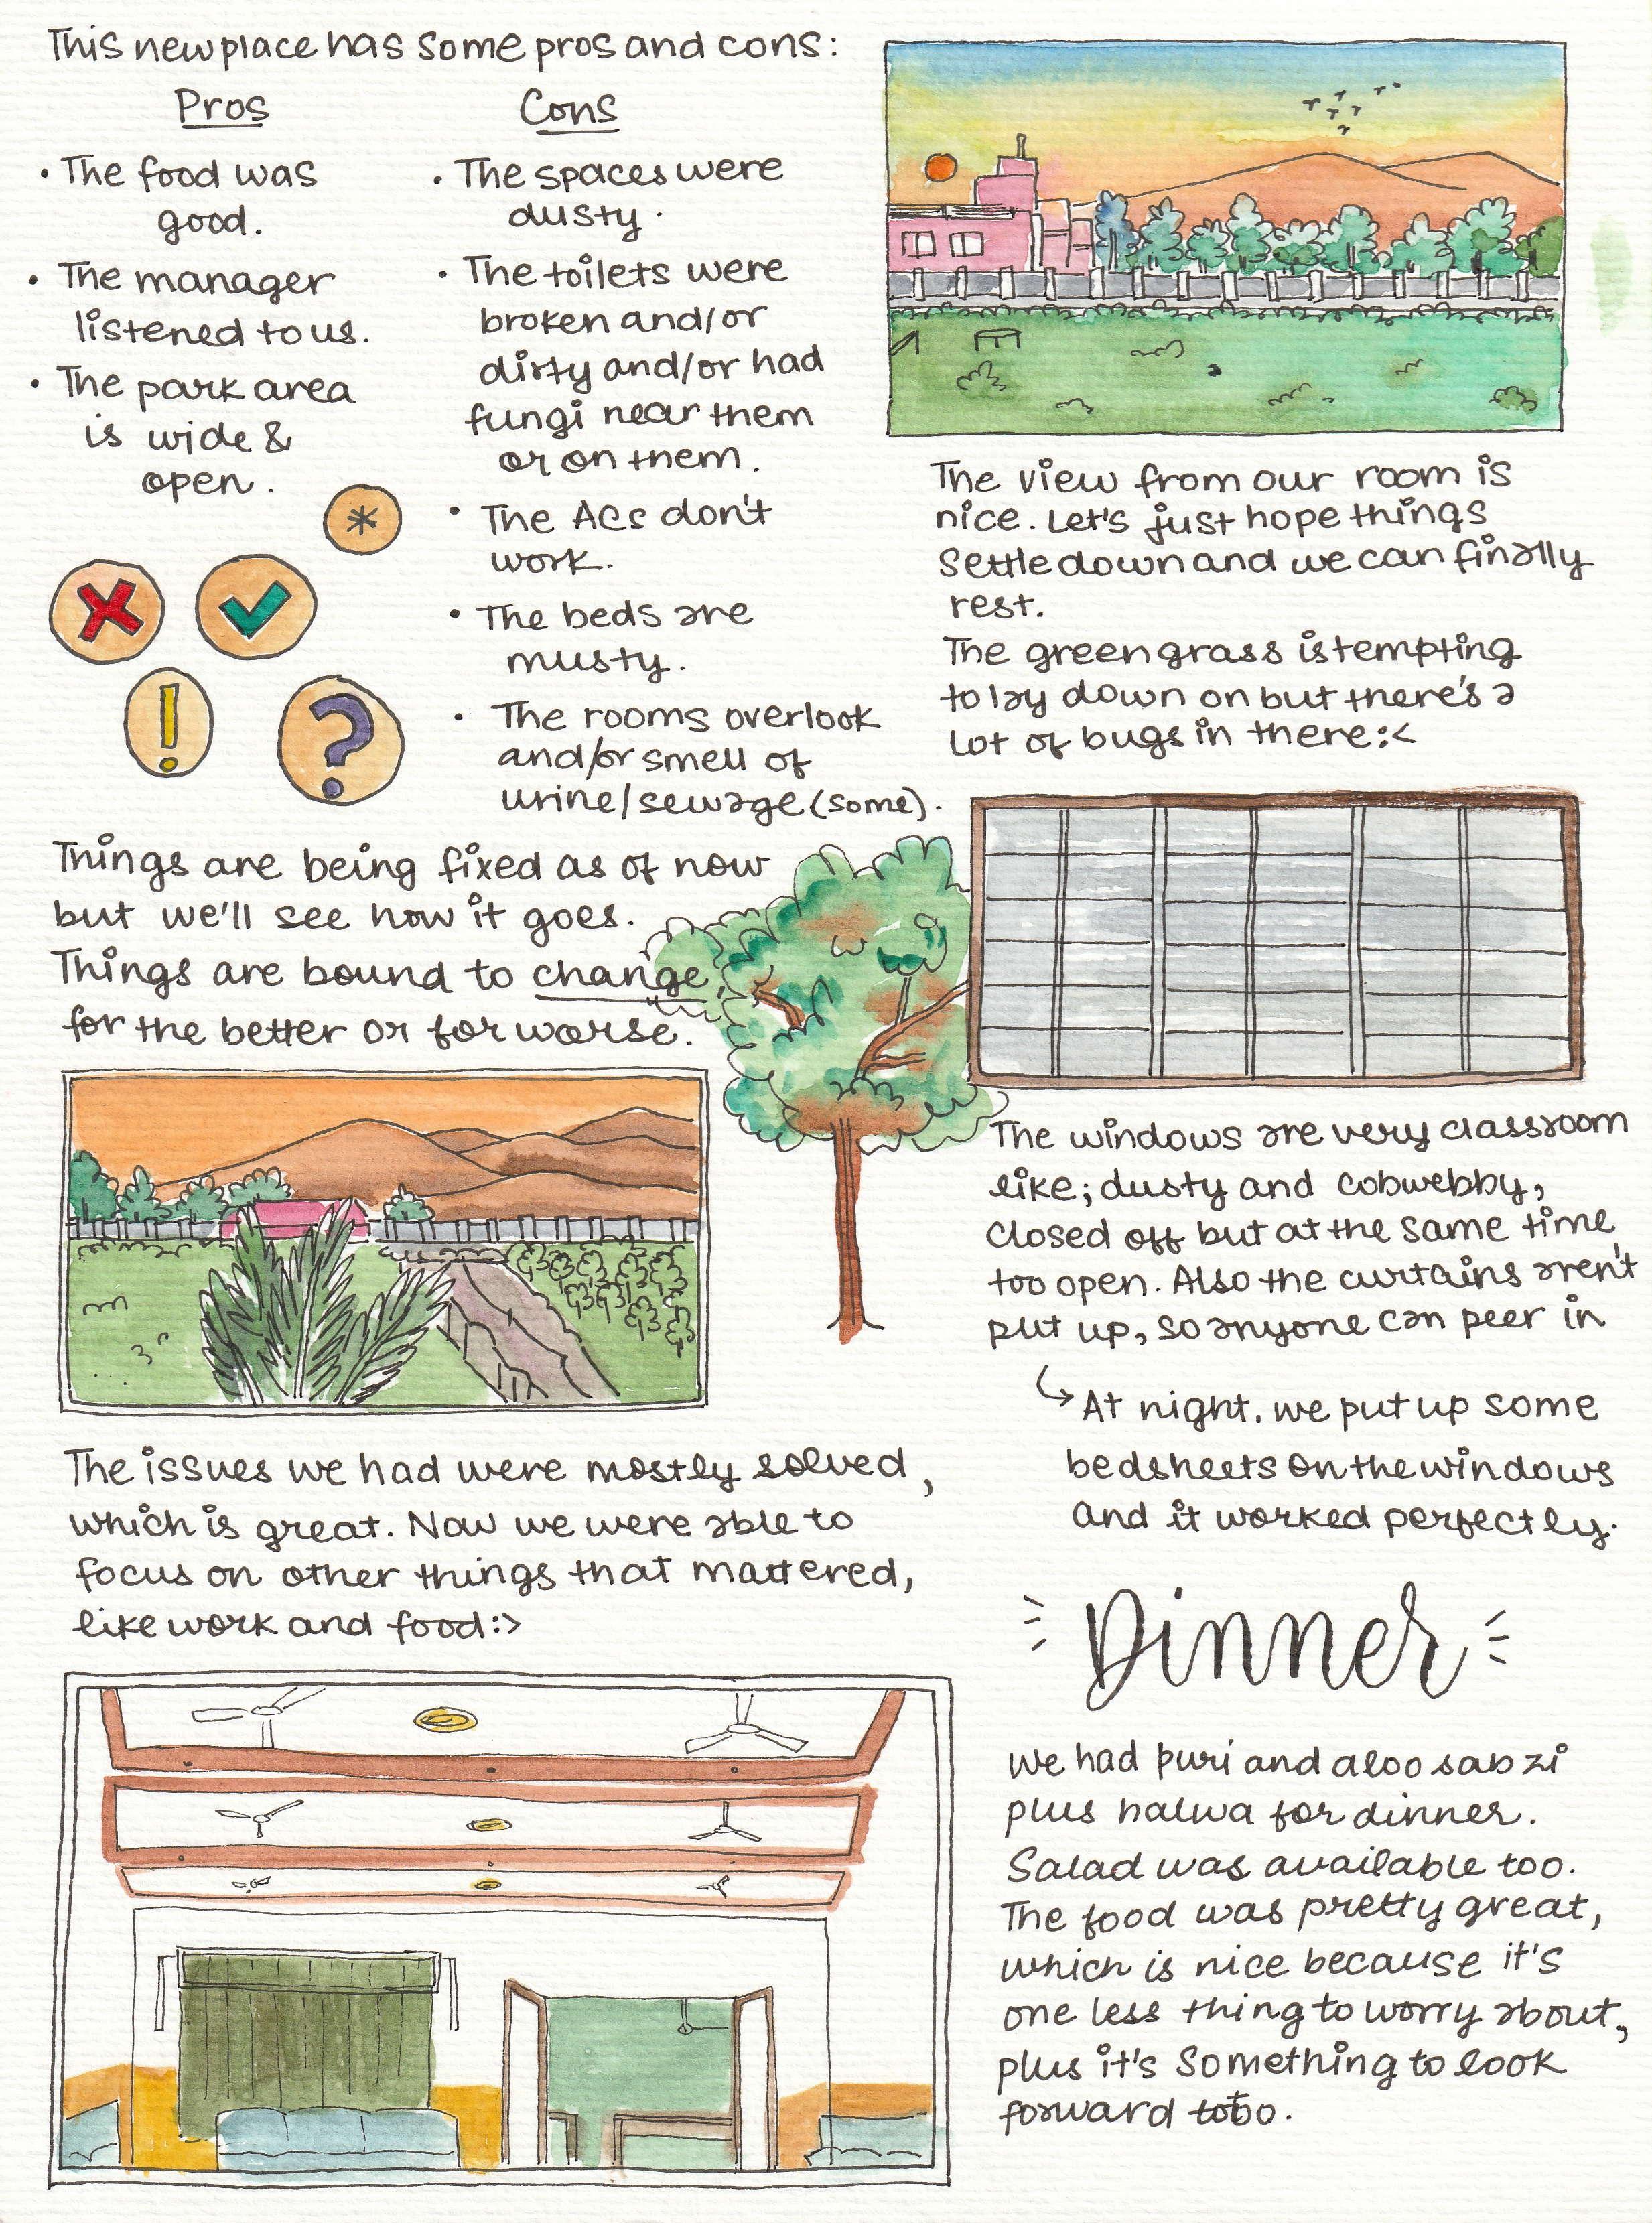 This new place has some pros and cons:
Pros
• The food was
good.
• The manager
listened to us.
• The park area
is wide &
open.
*
!
?
Cons
• The spaces were
dusty.
• The toilets were
broken and/or
dirty and/or had
fungi near them
or on them.
• The ACs don't
work.
• The beds are
musty.
• The rooms overlook
and/or smell of
urine/sewage (some).
Things are being fixed as of now
but we'll see how it goes.
Things are bound to change,
for the better or for worse.
The issues we had were mostly solved,
which is great. Now we were able to
focus on other things that mattered,
like work and food :>
The view from our room is
nice. Let's just hope things
settle down and we can finally
rest.
The green grass is tempting
to lay down on but there's a
lot of bugs in there :<
The windows are very classroom
like; dusty and cobwebby,
closed off but at the same time
too open. Also the curtains aren't
put up, so anyone can peer in
↳ At night, we put up some
bedsheets on the windows
and it worked perfectly.
Dinner
We had puri and aloo sabzi
plus halwa for dinner.
Salad was available too.
The food was pretty great,
which is nice because it's
one less thing to worry about,
plus it's something to look
forward to too.